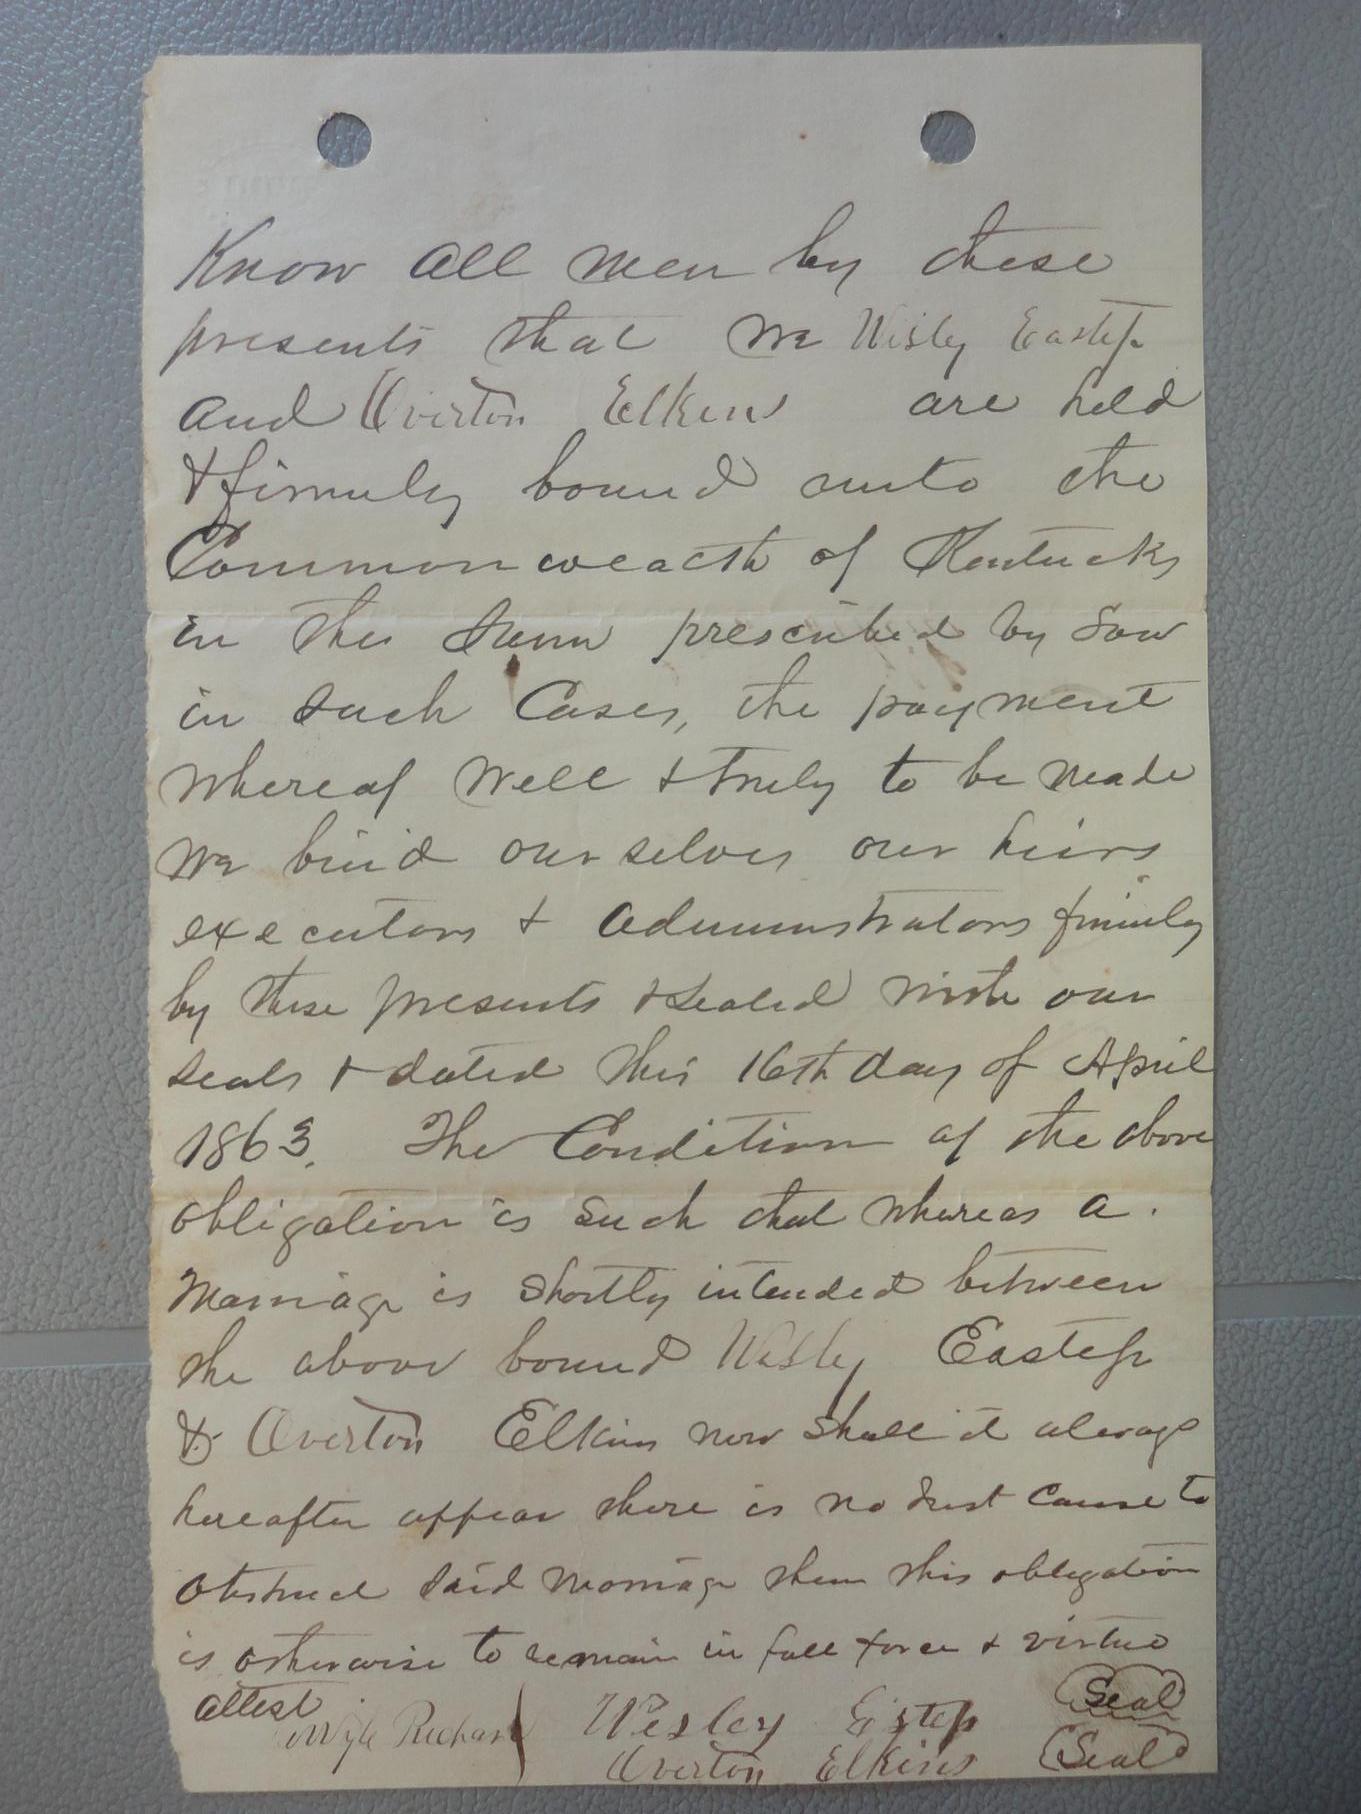 Know all men by these
presents that we Wisly Eastep
and Overton Elkins are held
& firmly bound unto the
Commonwealth of Kentucky
in the Sum prescribed by Law
in Such Cases, the payment
whereof well & truly to be made
we bind ourselves our heirs
executors & administrators firmly
by these presents & Sealed with our
Seals & dated this 16th day of April
1863. The Condition of the above
obligation is Such that whereas a
Marriage is Shortly intended between
the above bound Wesley Eastep
& Overton Elkins now Shall it always
hereafter appear there is no Just Cause to
obstruct Said Marriage then this obligation
is otherwise to remain in full force & virtue
attest Wesley Estep Seal
Overton Elkins Seal